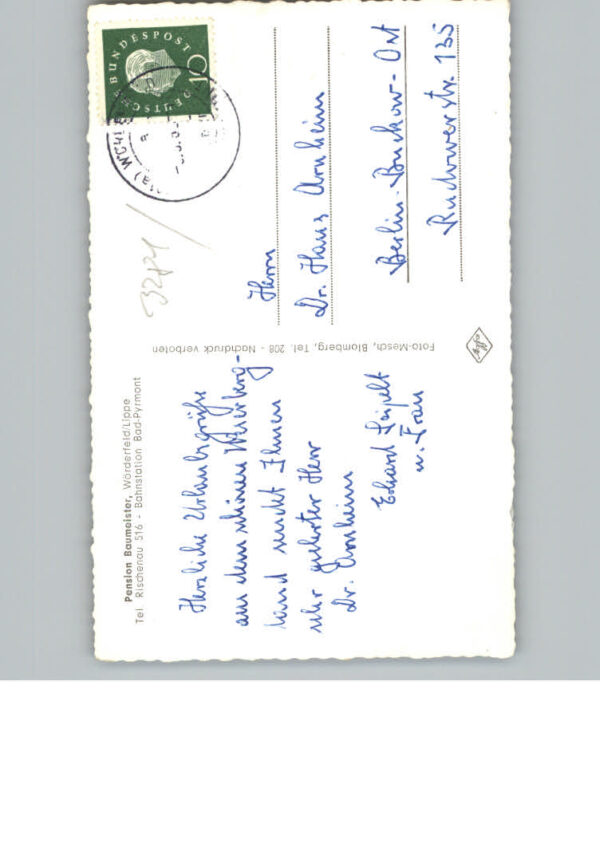 Pension Baumeister, Wörderfeld/Lippe
Tel. Rischenau 516 - Bahnstation Bad-Pyrmont
Herzliche Urlaubsgrüße
aus dem schönen Weserberg-
land sendet Ihnen
sehr geehrter Herr
Dr. Arnheim
Eduard
u. Frau
Foto-Mesch, Blomberg, Tel. 208 - Nachdruck verboten
DEUTSCHE BUNDESPOST
10
Herrn
Dr. Hans Arnheim
Berlin-Buckow-Ost
Rudowerstr. 135
Agfa